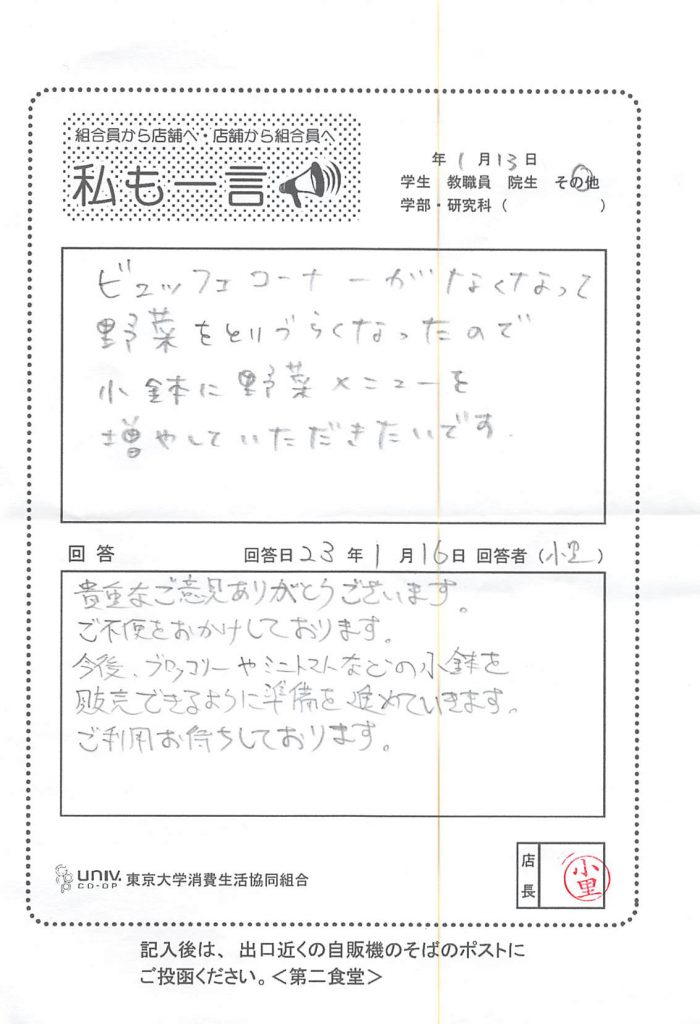 組合員から店舗へ・店舗から組合員へ
私も一言
年 1月13日
学生 教職員 院生 その他
学部・研究科（ ）
ビュッフェコーナーがなくなって
野菜をとりづらくなったので
小鉢に野菜メニューを
増やしていただきたいです.
回答 回答日23年1月16日 回答者（小里）
貴重なご意見ありがとうございます。
ご不便をおかけしております。
今後、ブロッコリーやミニトマトなどの小鉢を
販売できるように準備を進めていきます。
ご利用お待ちしております。
UNIV. CO-OP 東京大学消費生活協同組合
店長 小里
記入後は、出口近くの自販機のそばのポストに
ご投函ください。＜第二食堂＞